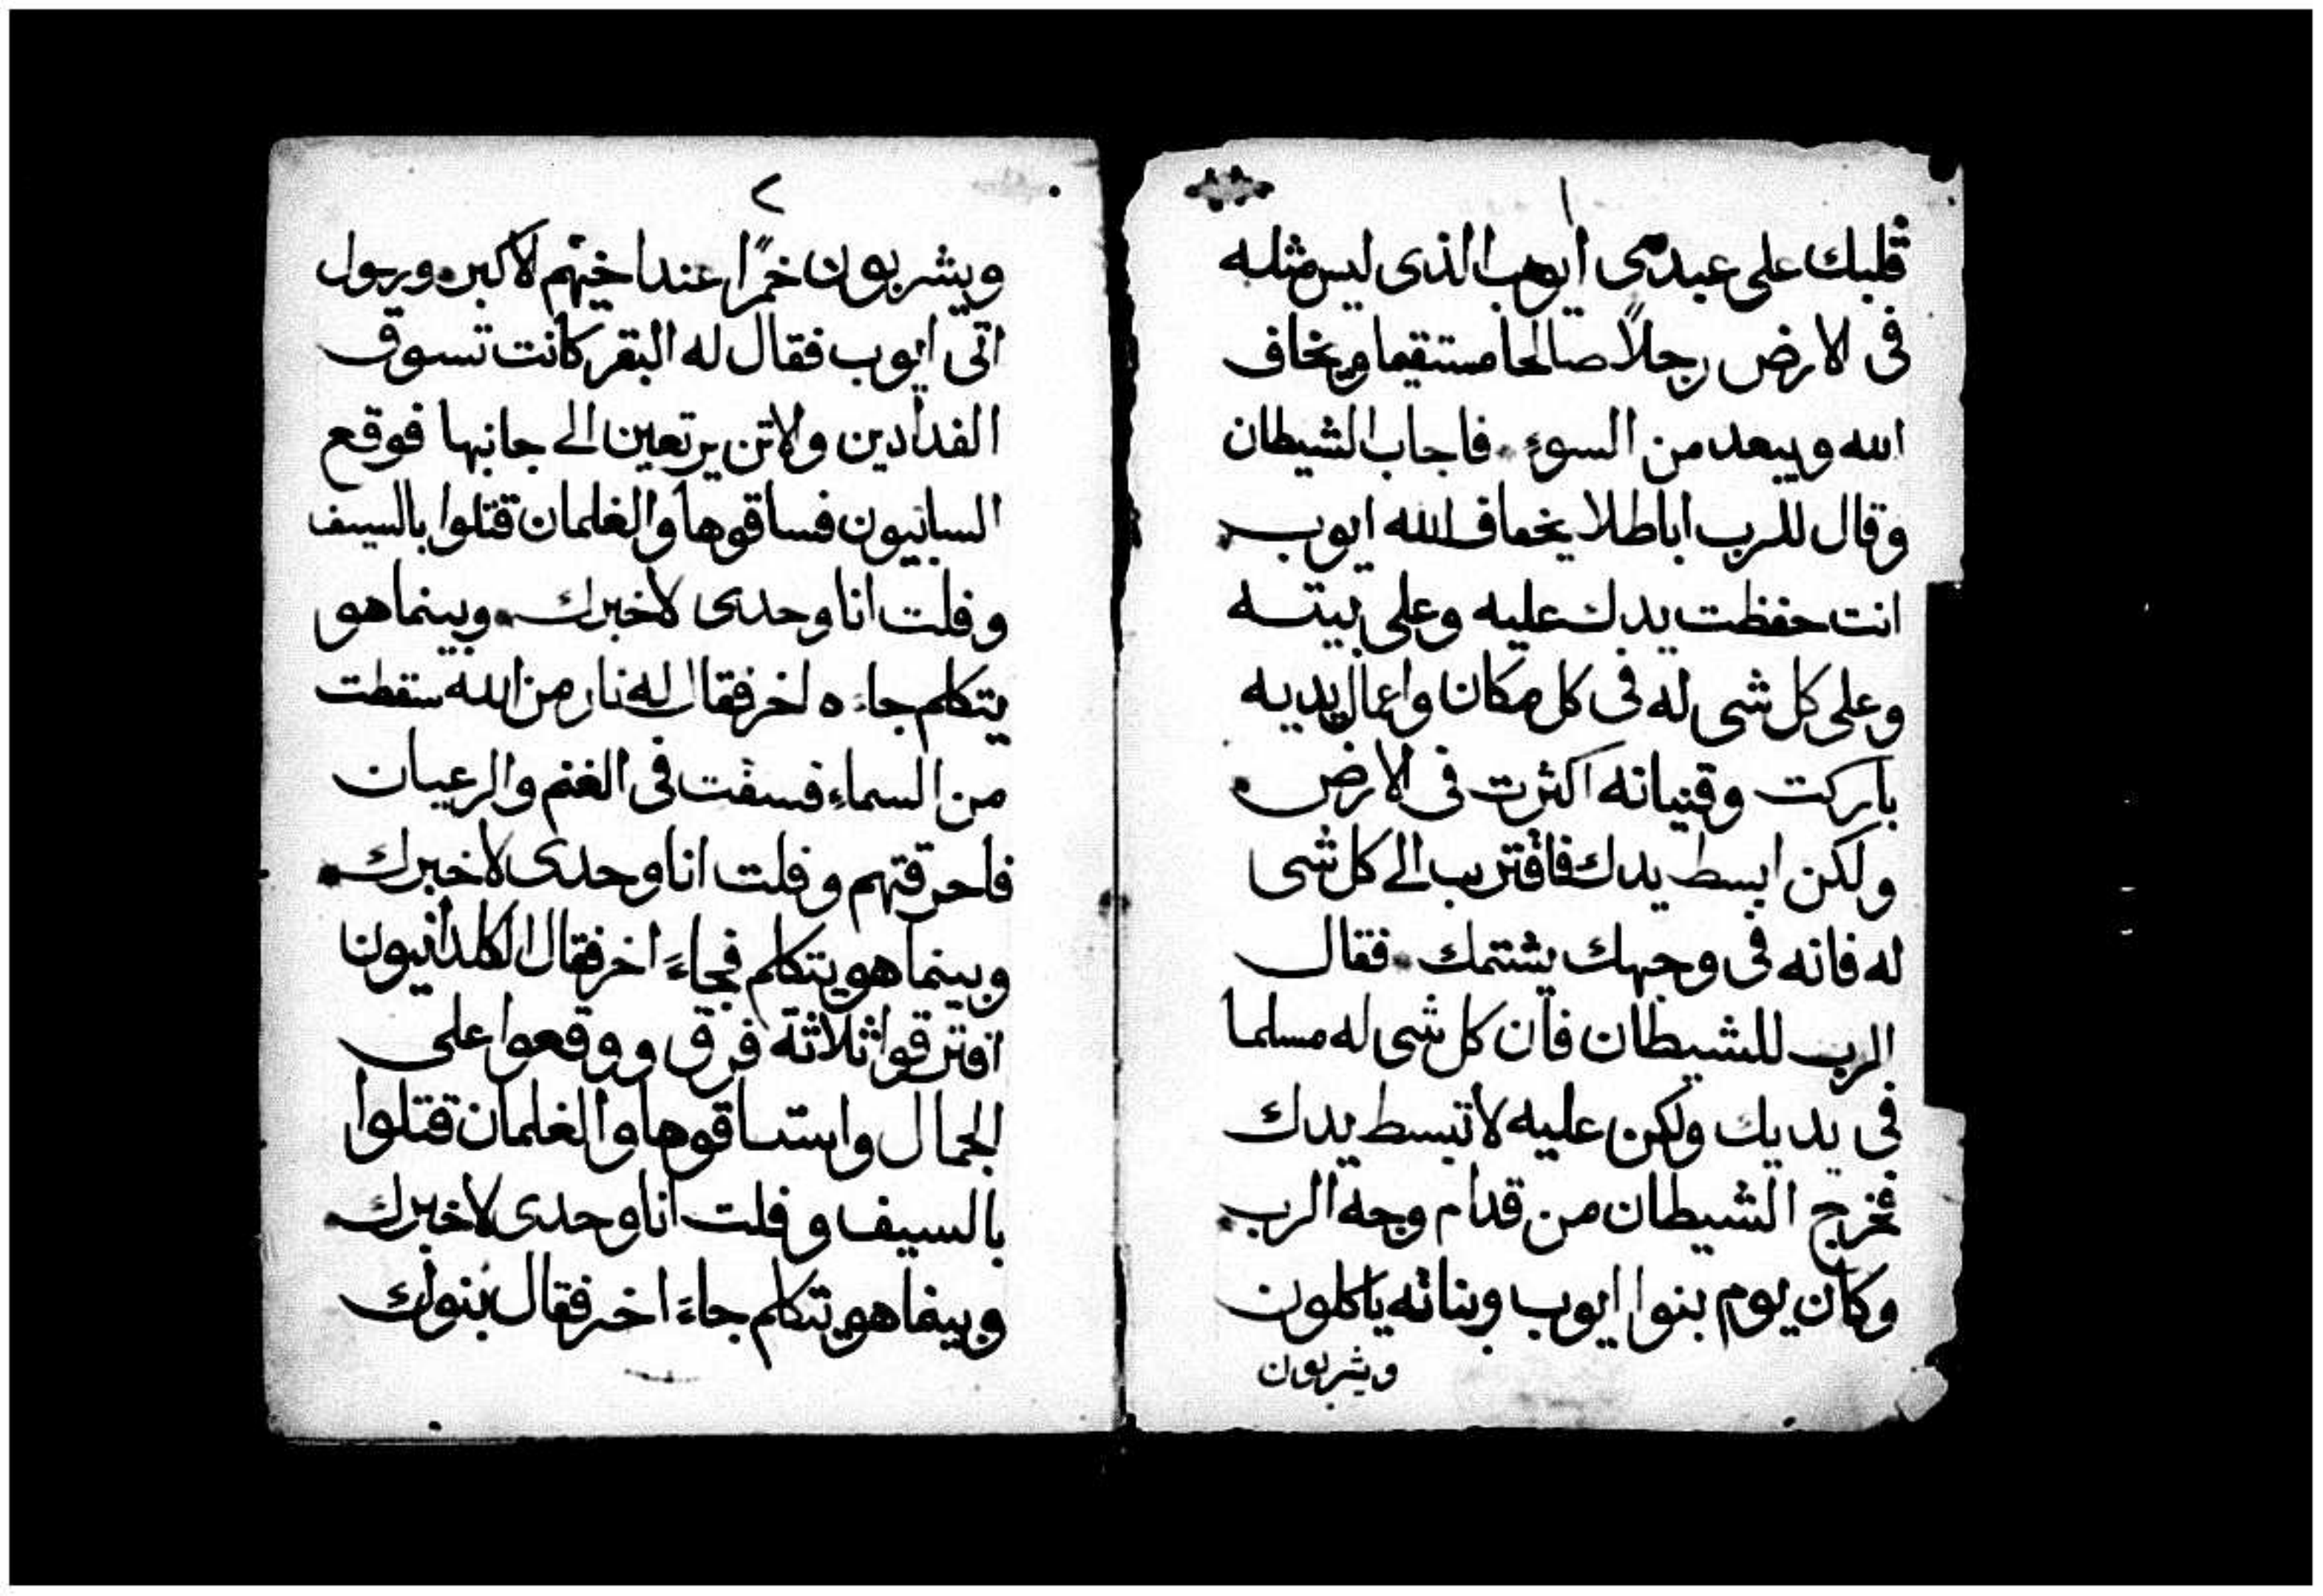 ١
قلبك على عبدى ايوب الذى ليس مثله
فى الارض رجلاً صالحا مستقيما ويخاف
الله ويبعد من السوء فاجاب الشيطان
وقال للرب اباطلا يخاف الله ايوب
انت حفظت يدك عليه وعلى بيته
وعلى كل شى له فى كل مكان واعمال يديه
باركت وقنيانه اكثرت فى الارض
ولكن ابسط يدك فاقترب الى كل شى
له فانه فى وجهك يشتمك فقال
الرب للشيطان فان كل شى له مسلما
فى يديك ولكن عليه لا تبسط يدك
فخرج الشيطان من قدام وجه الرب
وكان يوم بنوا ايوب وبناته ياكلون
ويشربون
٢
ويشربون خمرًا عند اخيهم الاكبر ورسول
اتى ايوب فقال له البقر كانت تسوق
الفدادين والاتن يرتعين الى جانبها فوقع
السبانيون فساقوها والغلمان قتلوا بالسيف
وفلت انا وحدى لاخبرك وبينما هو
يتكلم جاءه اخر فقال له نار من الله سقطت
من السماء فسفت فى الغنم والرعيان
فاحرقتهم وفلت انا وحدى لاخبرك
وبينما هو يتكلم فجاء اخر فقال الكلدانيون
افترقوا ثلاثة فرق ووقعوا على
الجمال واستاقوها والغلمان قتلوا
بالسيف وفلت انا وحدى لاخبرك
وبينما هو يتكلم جاء اخر فقال بنوك